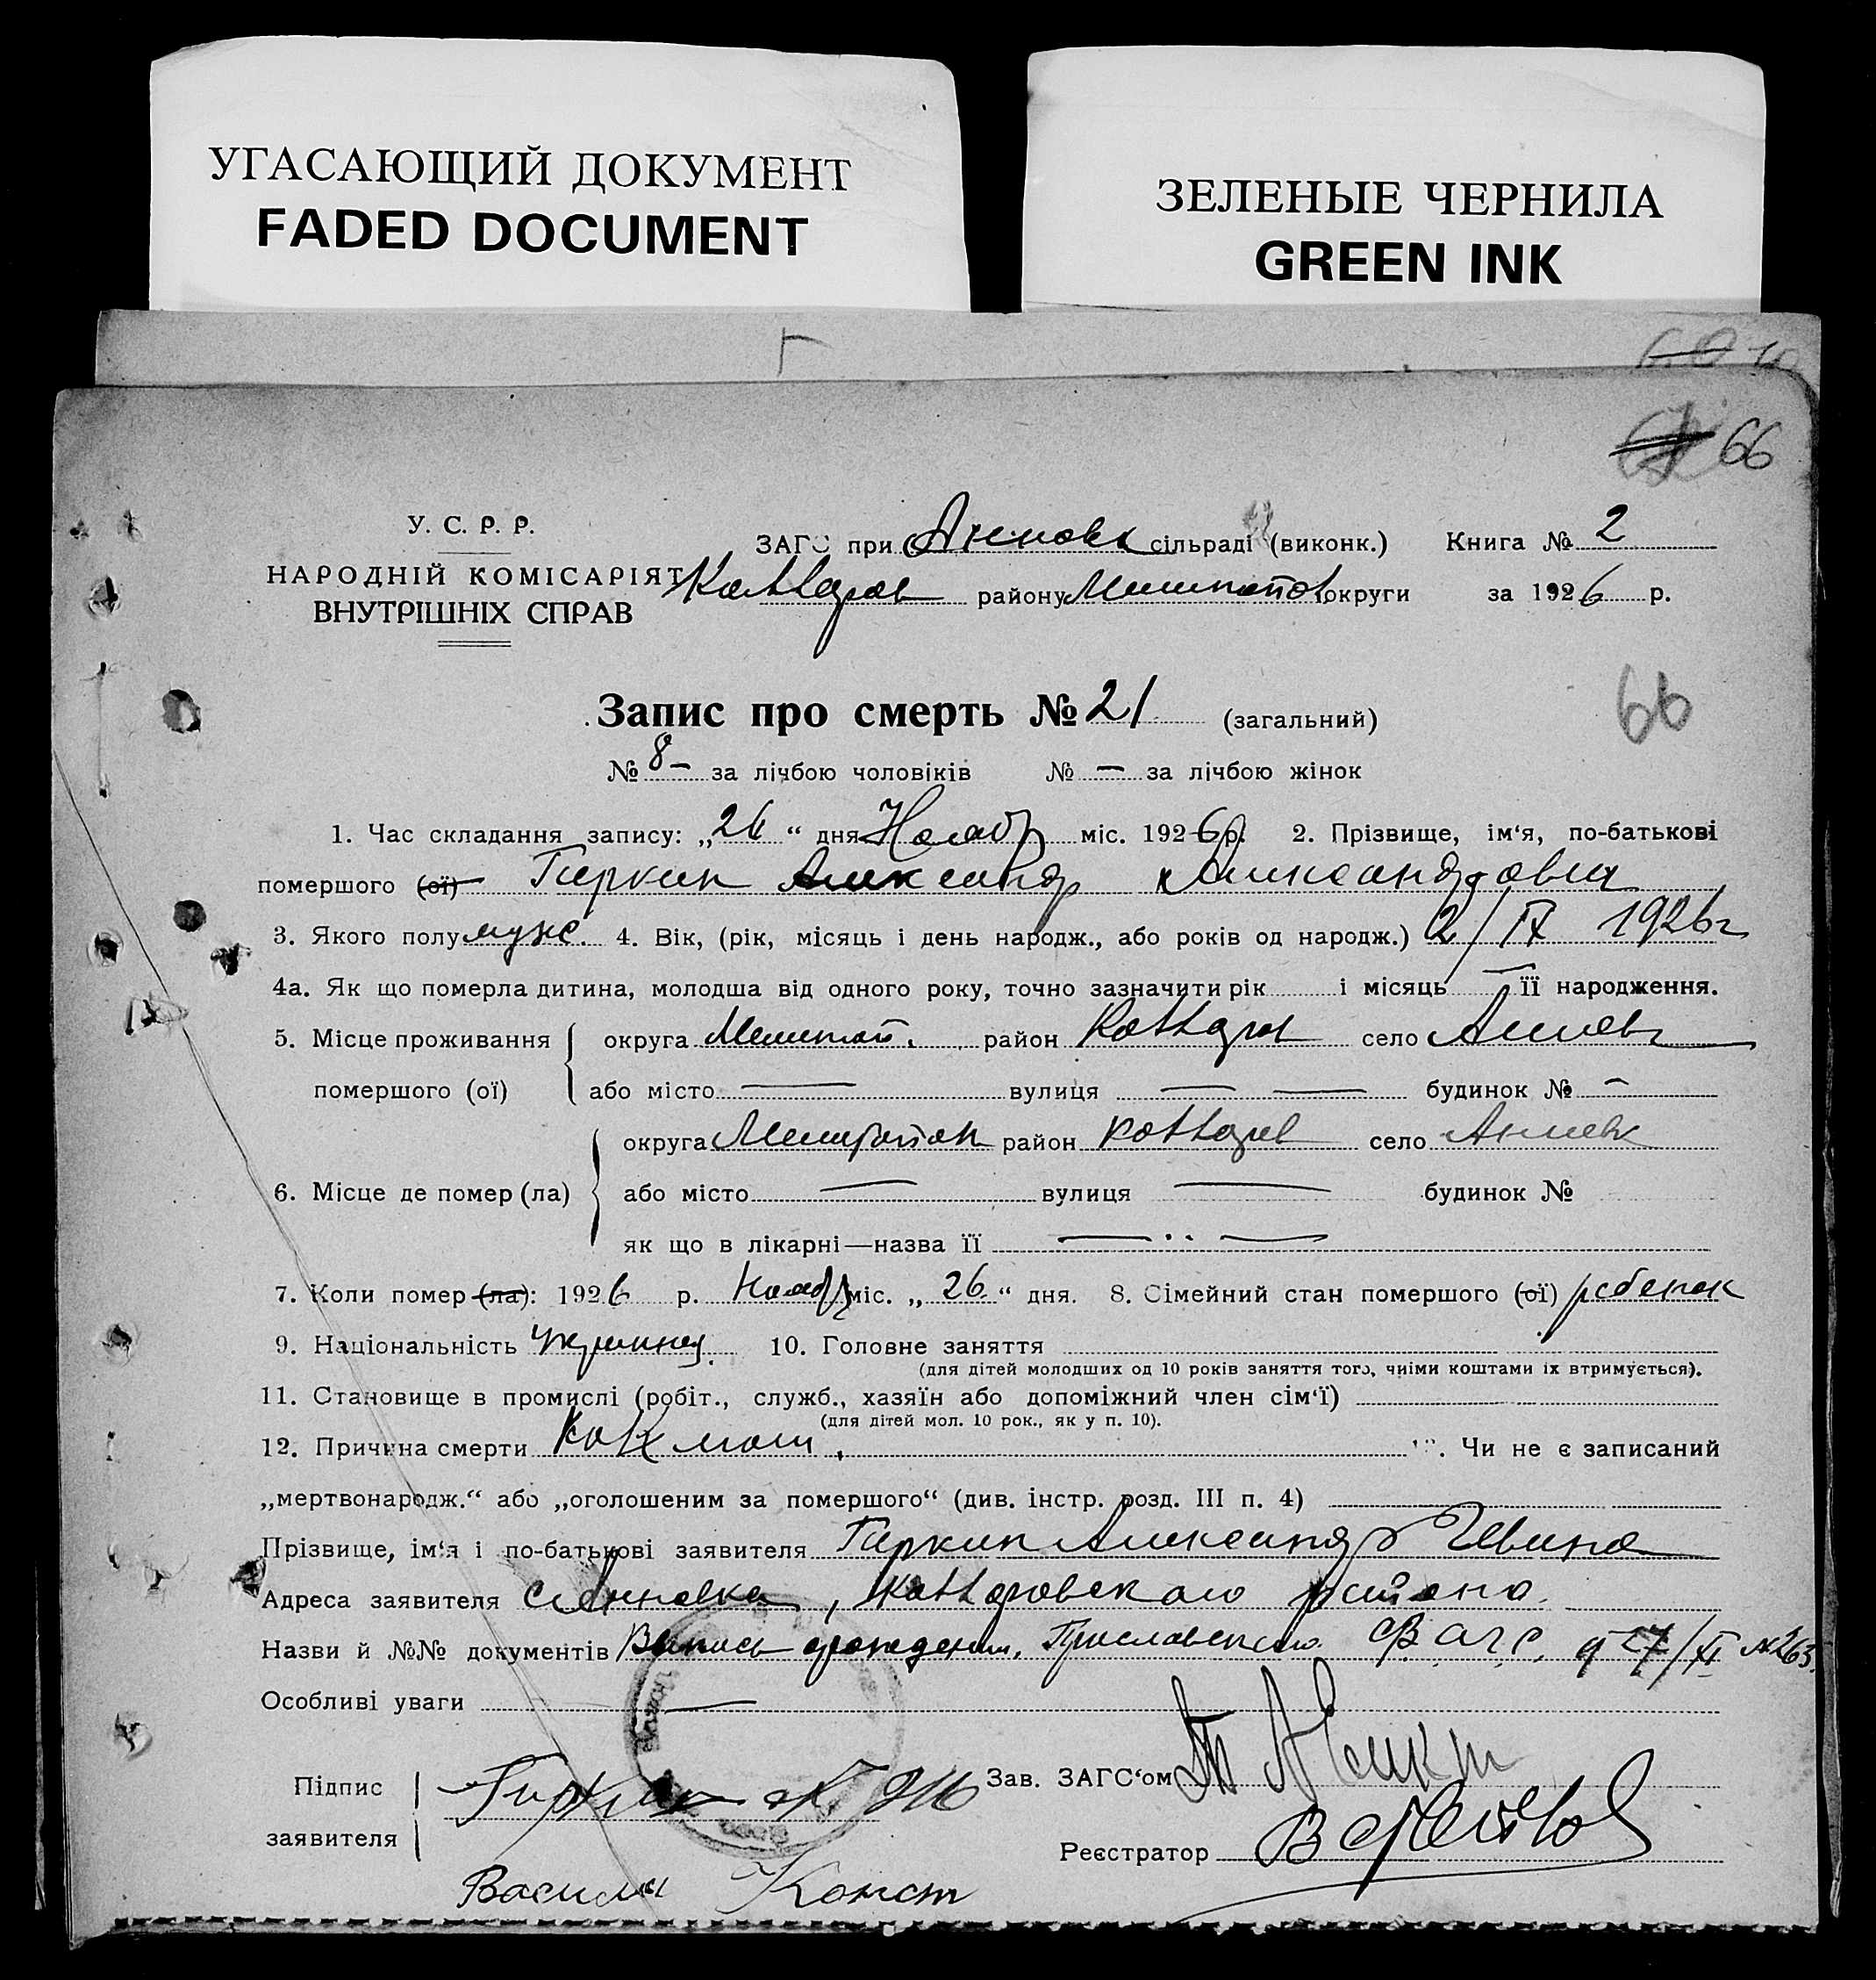 УГАСАЮЩИЙ ДОКУМЕНТ
FADED DOCUMENT
ЗЕЛЕНЫЕ ЧЕРНИЛА
GREEN INK
66
У. С. Р. Р.
НАРОДНІЙ КОМІСАРІЯТ
ВНУТРІШНІХ СПРАВ
ЗАГС при Анновк сільраді (виконк.) Книга № 2
району округи за 1926 р.
66
Запис про смерть № 21 (загальний)
№ 8 – за лічбою чоловіків № — за лічбою жінок
1. Час складання запису: „26“ дня Ноябр міс. 1926 р. 2. Прізвище, ім‘я, по-батькові
помершого (ої) Гиркин Александр Александрович
3. Якого полу муж. 4. Вік, (рік, місяць і день народж., або років од народж.) 2/IX 1926 г
4а. Як що померла дитина, молодша від одного року, точно зазначити рік і місяць — її народження.
5. Місце проживання помершого (ої) округа Мелитоп. район село
або місто — вулиця — — будинок № —
6. Місце де помер (ла) округа Мелитопол район село
або місто — вулиця — будинок №
як що в лікарні—назва її — .. —
7. Коли помер (ла): 1926 р. Ноябр міс. „26“ дня. 8. Сімейний стан помершого (ої) ребенок
9. Національність Украинец. 10. Головне заняття
(для дітей молодших од 10 років заняття того, чиїми коштами їх втримується).
11. Становище в промислі (робіт., служб., хазяїн або допоміжний член сім‘ї)
(для дітей мол. 10 рок., як у п. 10).
12. Причина смерти . Чи не є записаний
„мертвонародж.“ або „оголошеним за помершого“ (див. інстр. розд. III п. 4)
Прізвище, ім‘я і по-батькові заявителя Гиркин Александр
Адреса заявителя с Анновка, района.
Назви й №№ документів Выпись рождении, 27/XI №263.
Особливі уваги —
Підпис заявителя Гиркин
Зав. ЗАГС‘ом
Реєстратор
Васили Конст